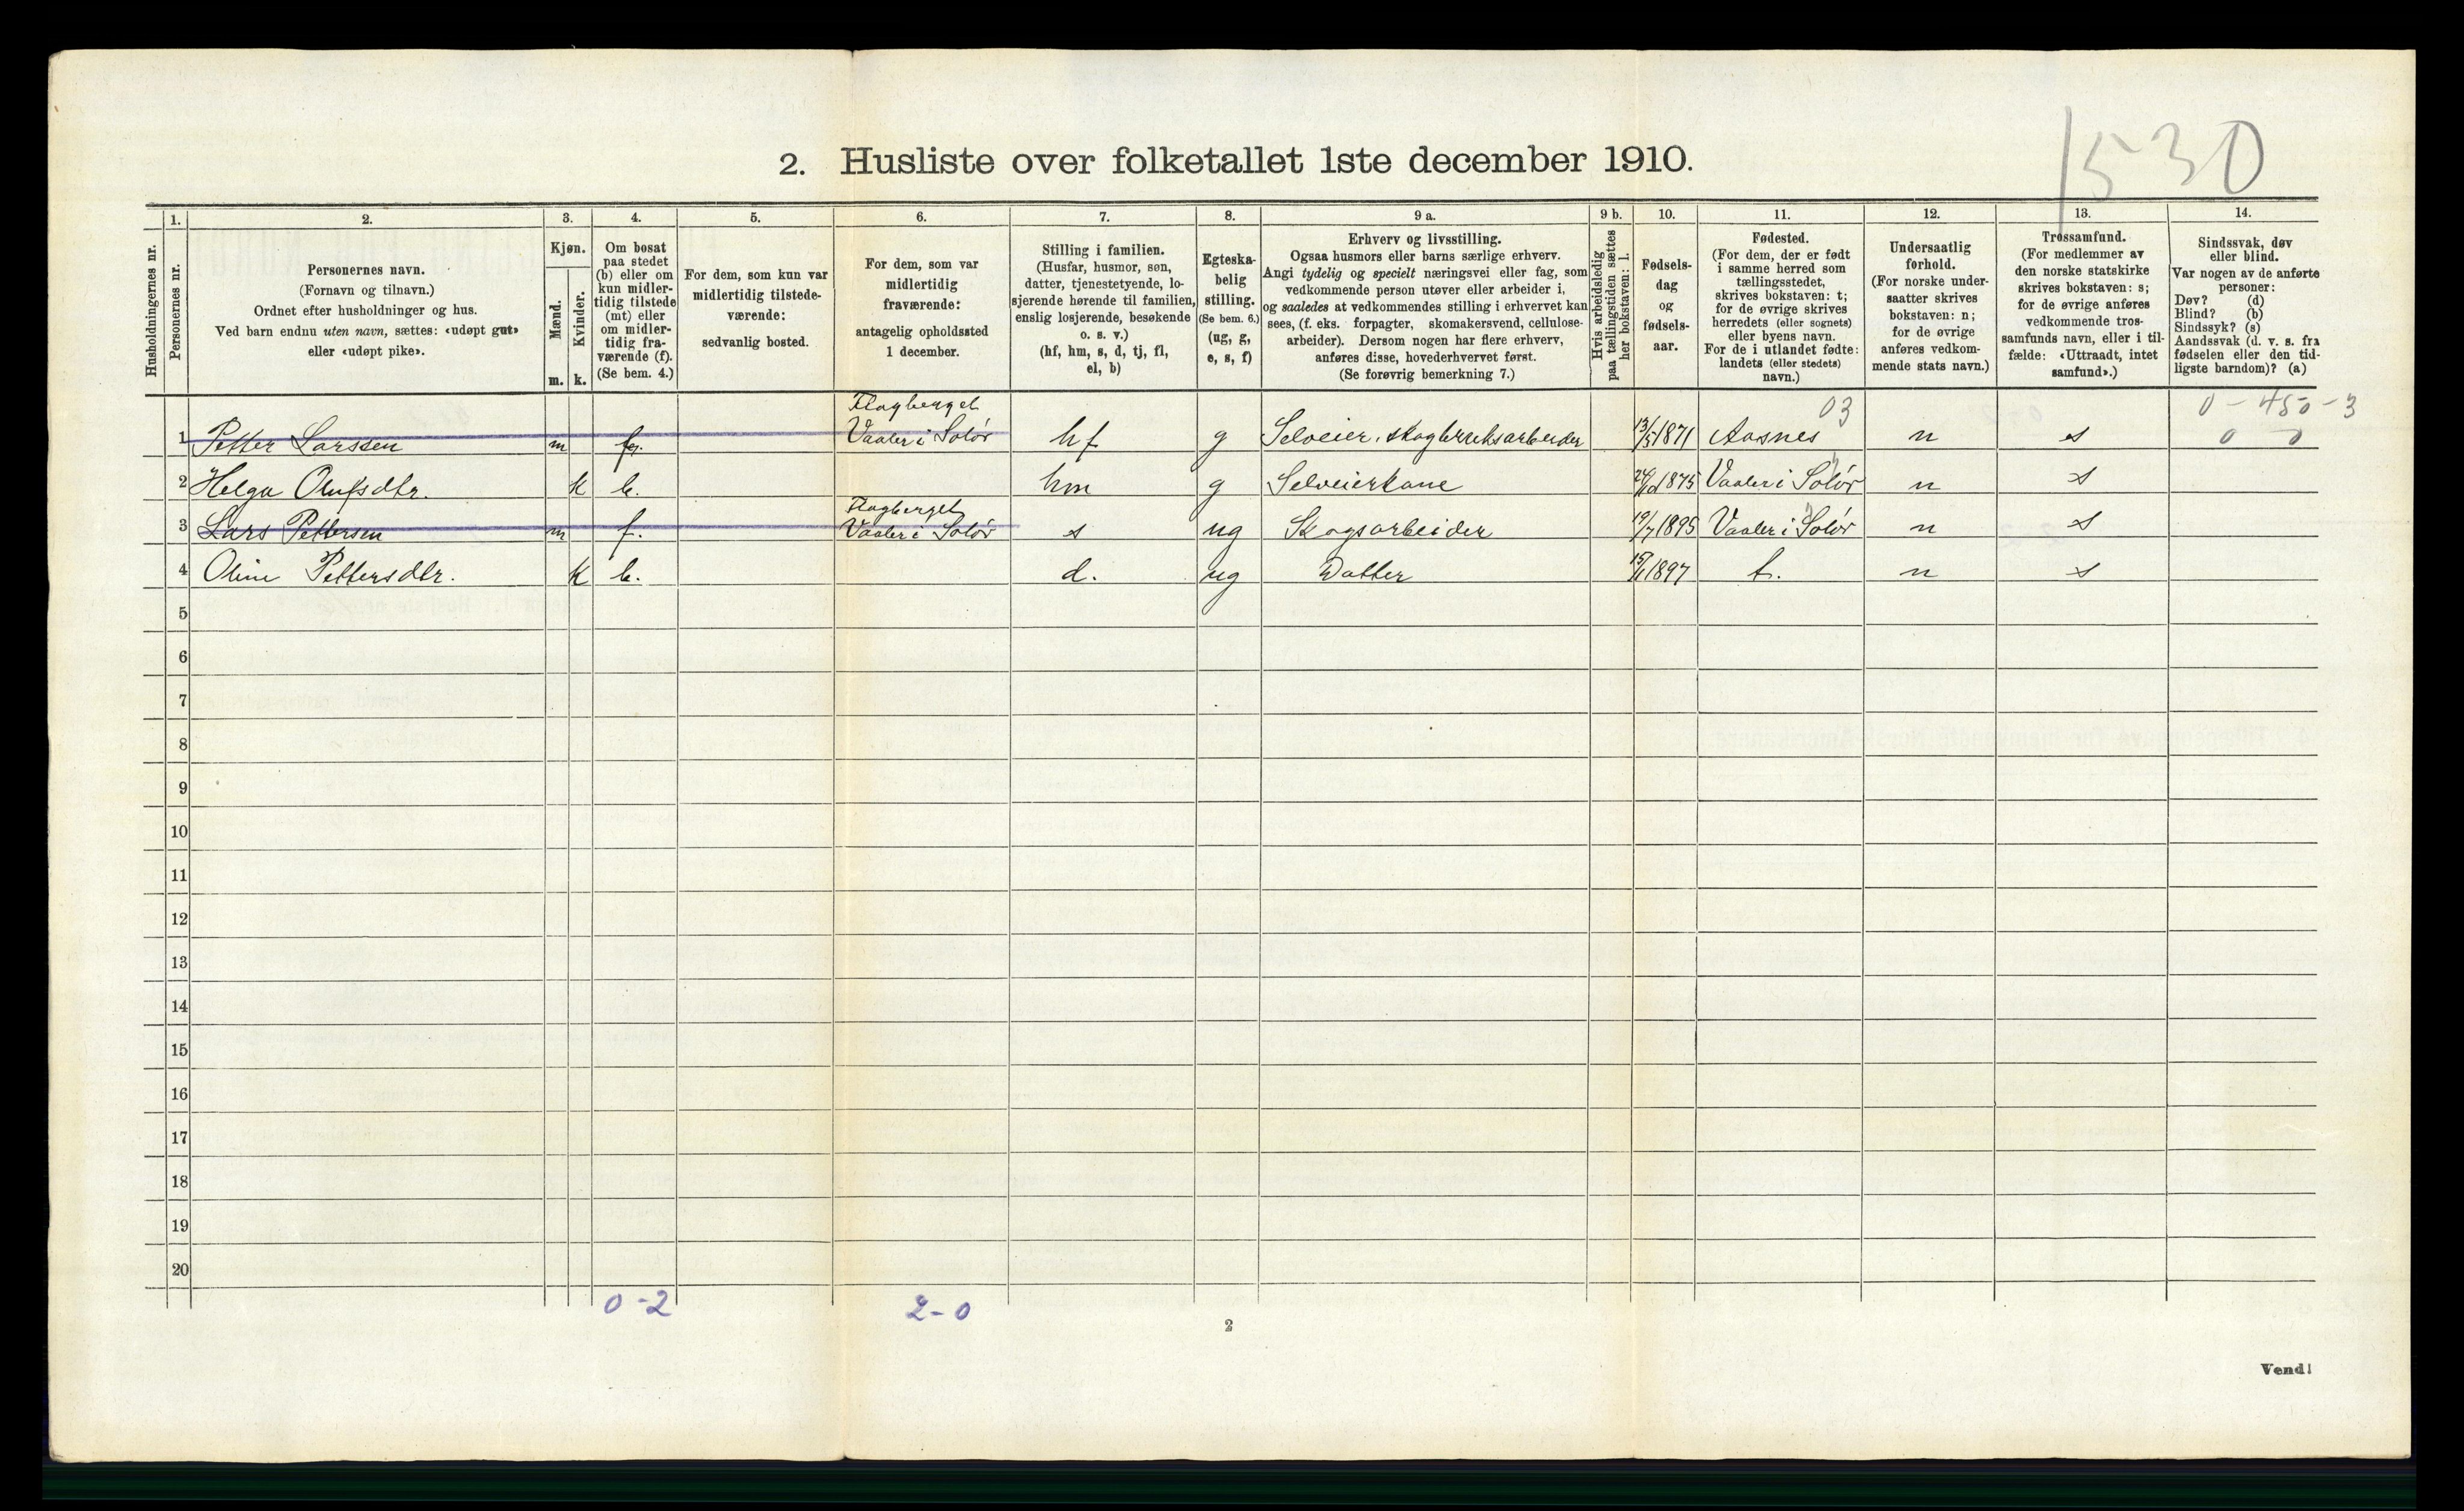 1530
2. Husliste over folketallet 1ste december 1910.
Husholdningernes nr.
1.
Personernes nr.
2.
Personernes navn.
(Fornavn og tilnavn.)
Ordnet efter husholdninger og hus.
Ved barn endnu uten navn, sættes: «udøpt gut»
eller «udøpt pike».
3.
Kjøn.
Mænd.
m.
Kvinder.
k.
4.
Om bosat
paa stedet
(b) eller om
kun midler-
tidig tilstede
(mt) eller
om midler-
tidig fra-
værende (f).
(Se bem. 4.)
5.
For dem, som kun var
midlertidig tilstede-
værende:
sedvanlig bosted.
6.
For dem, som var
midlertidig
fraværende:
antagelig opholdssted
1 december.
7.
Stilling i familien.
(Husfar, husmor, søn,
datter, tjenestetyende, lo-
sjerende hørende til familien,
enslig losjerende, besøkende
o. s. v.)
(hf, hm, s, d, tj, fl,
el, b)
8.
Egteska-
belig
stilling.
(Se bem. 6.)
(ug, g,
e, s, f)
9 a.
Erhverv og livsstilling.
Ogsaa husmors eller barns særlige erhverv.
Angi tydelig og specielt næringsvei eller fag, som
vedkommende person utøver eller arbeider i,
og saaledes at vedkommendes stilling i erhvervet kan
sees, (f. eks. forpagter, skomakersvend, cellulose-
arbeider). Dersom nogen har flere erhverv,
anføres disse, hovederhvervet først.
(Se forøvrig bemerkning 7.)
9 b.
Hvis arbeidsledig
paa tællingstiden sættes
her bokstaven: l.
10.
Fødsels-
dag
og
fødsels-
aar.
11.
Fødested.
(For dem, der er født
i samme herred som
tællingsstedet,
skrives bokstaven: t;
for de øvrige skrives
herredets (eller sognets)
eller byens navn.
For de i utlandet fødte:
landets (eller stedets)
navn.)
12.
Undersaatlig
forhold.
(For norske under-
saatter skrives
bokstaven: n;
for de øvrige
anføres vedkom-
mende stats navn.)
13.
Trossamfund.
(For medlemmer av
den norske statskirke
skrives bokstaven: s;
for de øvrige anføres
vedkommende tros-
samfunds navn, eller i til-
fælde: «Uttraadt, intet
samfund».)
14.
Sindssvak, døv
eller blind.
Var nogen av de anførte
personer:
Døv? (d)
Blind? (b)
Sindssyk? (s)
Aandssvak (d. v. s. fra
fødselen eller den tid-
ligste barndom)? (a)
Flagberget 03 0 - 450 - 3
1 Petter Larssen m f. Vaaler i Solør hf g Selveier, skogbruksarbeider 13/5 1871 Aasnes n s 0 0
2 Helga Olufsdtr. k b. hm g Selveierkone 1875 Vaaler i Solør n s
Flagberget
3 Lars Pettersen m f. Vaaler i Solør s ug Skogsarbeider 19/7 1895 Vaaler i Solør n s
4 Oline Pettersdtr. k b. d. ug Datter 1897 t. n s
5
6
7
8
9
10
11
12
13
14
15
16
17
18
19
20
0 - 2 2 - 0
2
Vend!